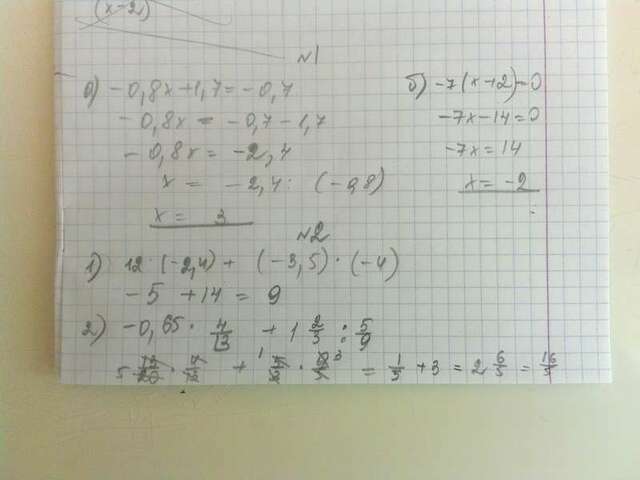 (x-2)
№1
а) -0,8x+1,7=-0,7
-0,8x = -0,7-1,7
-0,8x = -2,4
x = -2,4: (-0,8)
x = 3
б) -7(x+2)=0
-7x-14=0
-7x=14
x= -2
№2
1) 12 (-2,4) + (-3,5)·(-4)
-5 +14 = 9
2) -0,65 · 4/13 + 1 2/3 : 5/9
= 1/5 +3 = 2 6/5 = 16/5